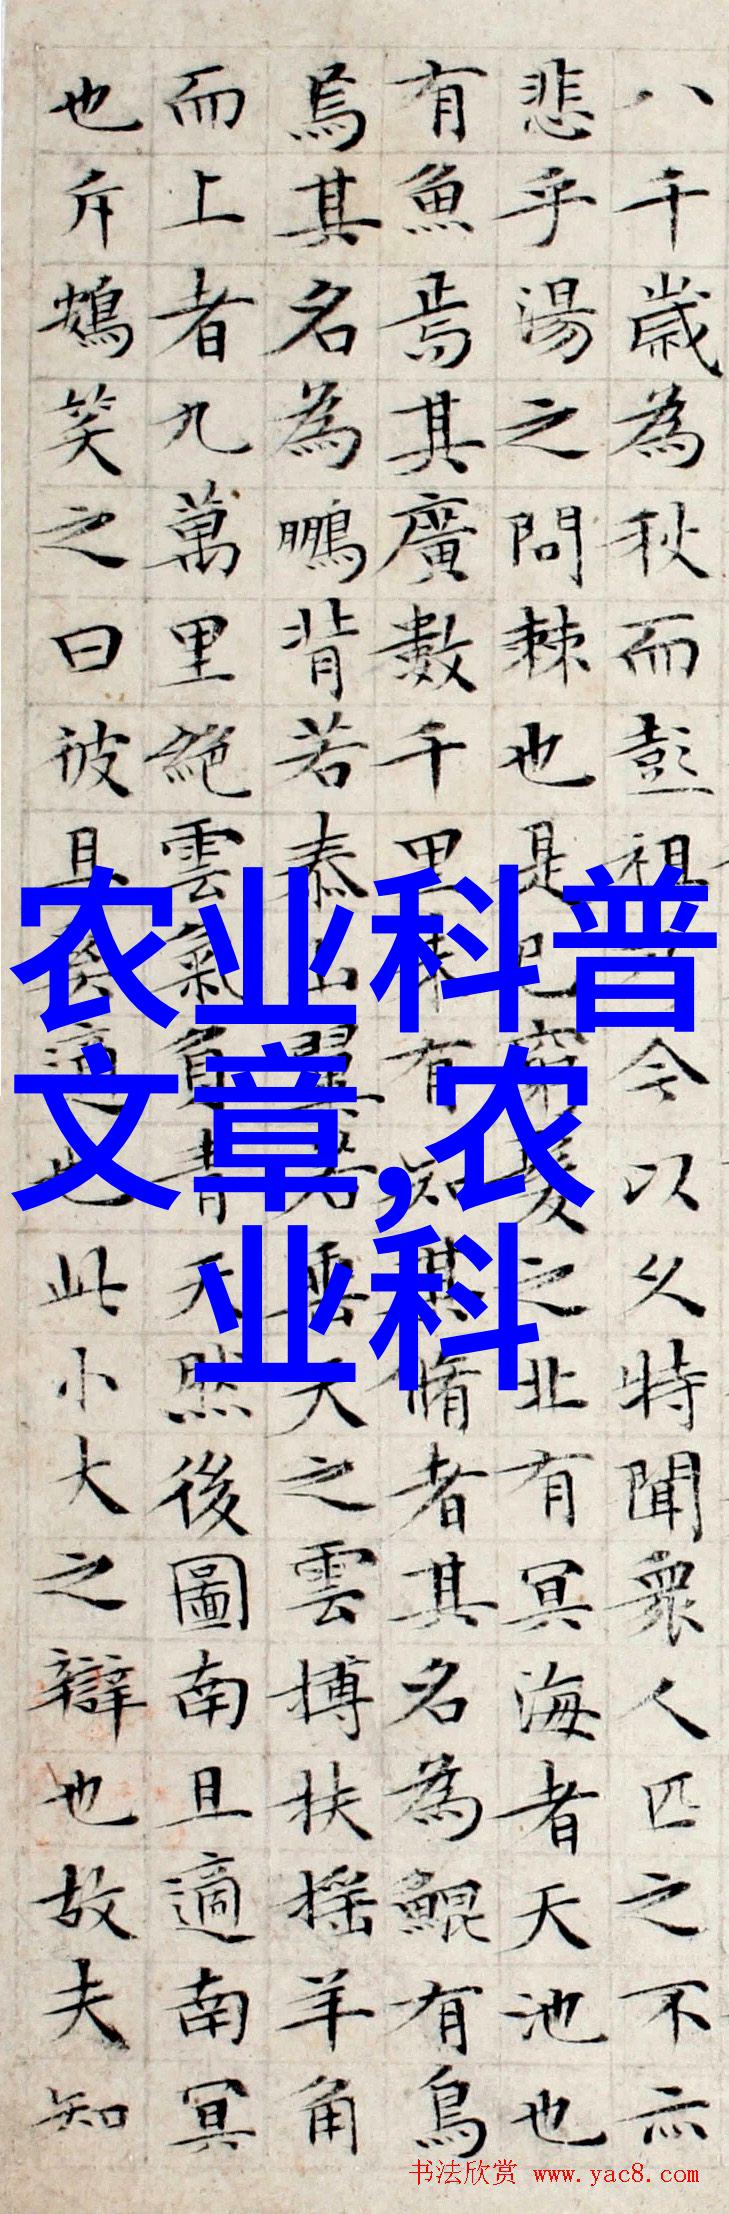 八千歲為秋而彭祖乃今以久特聞衆人匹之不亦
悲乎湯之問棘也是已窮髮之北有冥海者天池也
有魚焉其廣數千里未有知其脩者其名為鯤有鳥
焉其名為鵬背若泰山翼若垂天之雲摶扶搖羊角
而上者九萬里絕雲氣負青天然後圖南且適南冥
也斥鴳笑之曰彼且奚適也此小大之辯也故夫知
农业科普
文章,农
业科
书法欣赏 www.yac8.com